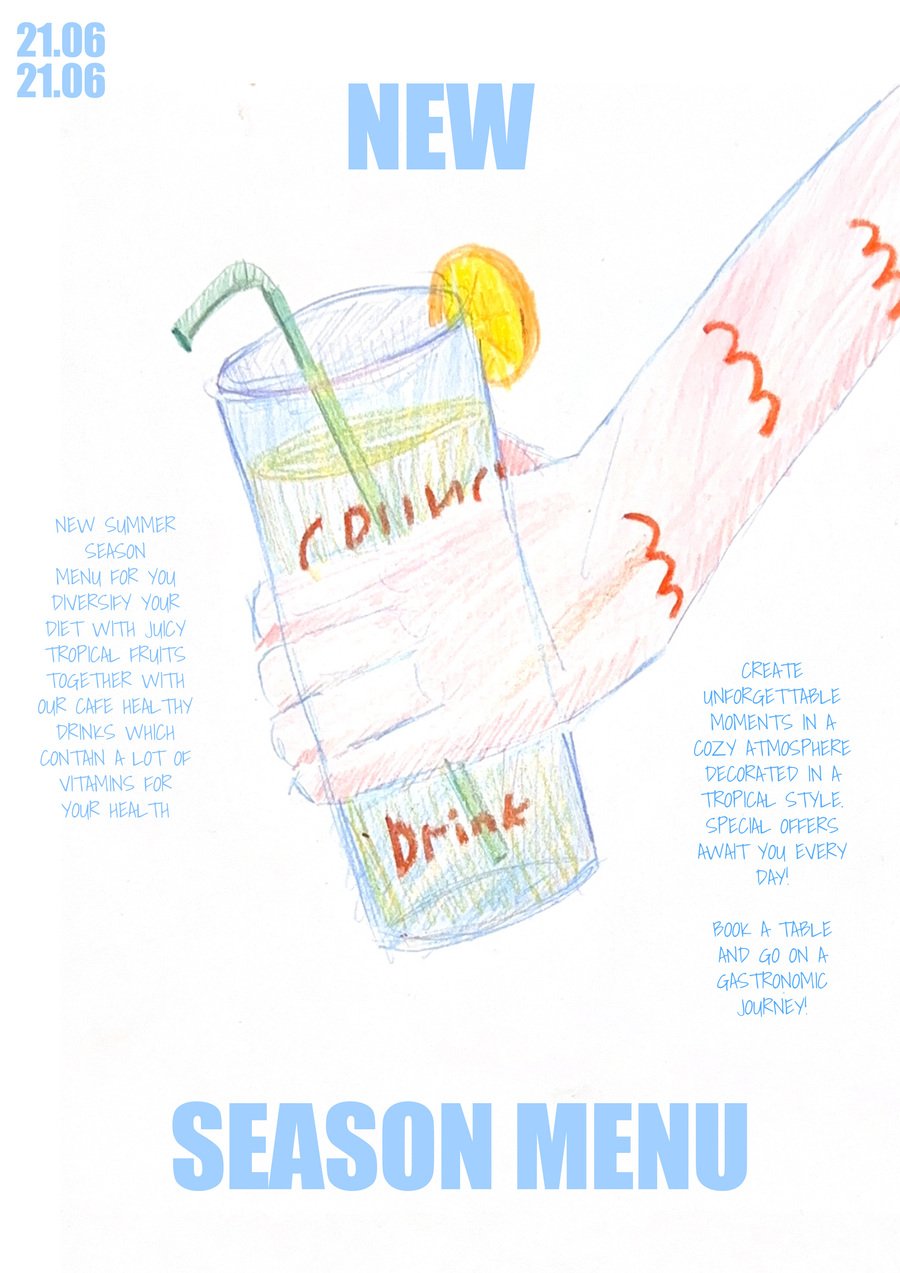 21.06
21.06
NEW
NEW SUMMER
SEASON
MENU FOR YOU
DIVERSIFY YOUR
DIET WITH JUICY
TROPICAL FRUITS
TOGETHER WITH
OUR CAFE HEALTHY
DRINKS WHICH
CONTAIN A LOT OF
VITAMINS FOR
YOUR HEALTH
Drink
CREATE
UNFORGETTABLE
MOMENTS IN A
COZY ATMOSPHERE
DECORATED IN A
TROPICAL STYLE.
SPECIAL OFFERS
AWAIT YOU EVERY
DAY!
BOOK A TABLE
AND GO ON A
GASTRONOMIC
JOURNEY!
SEASON MENU